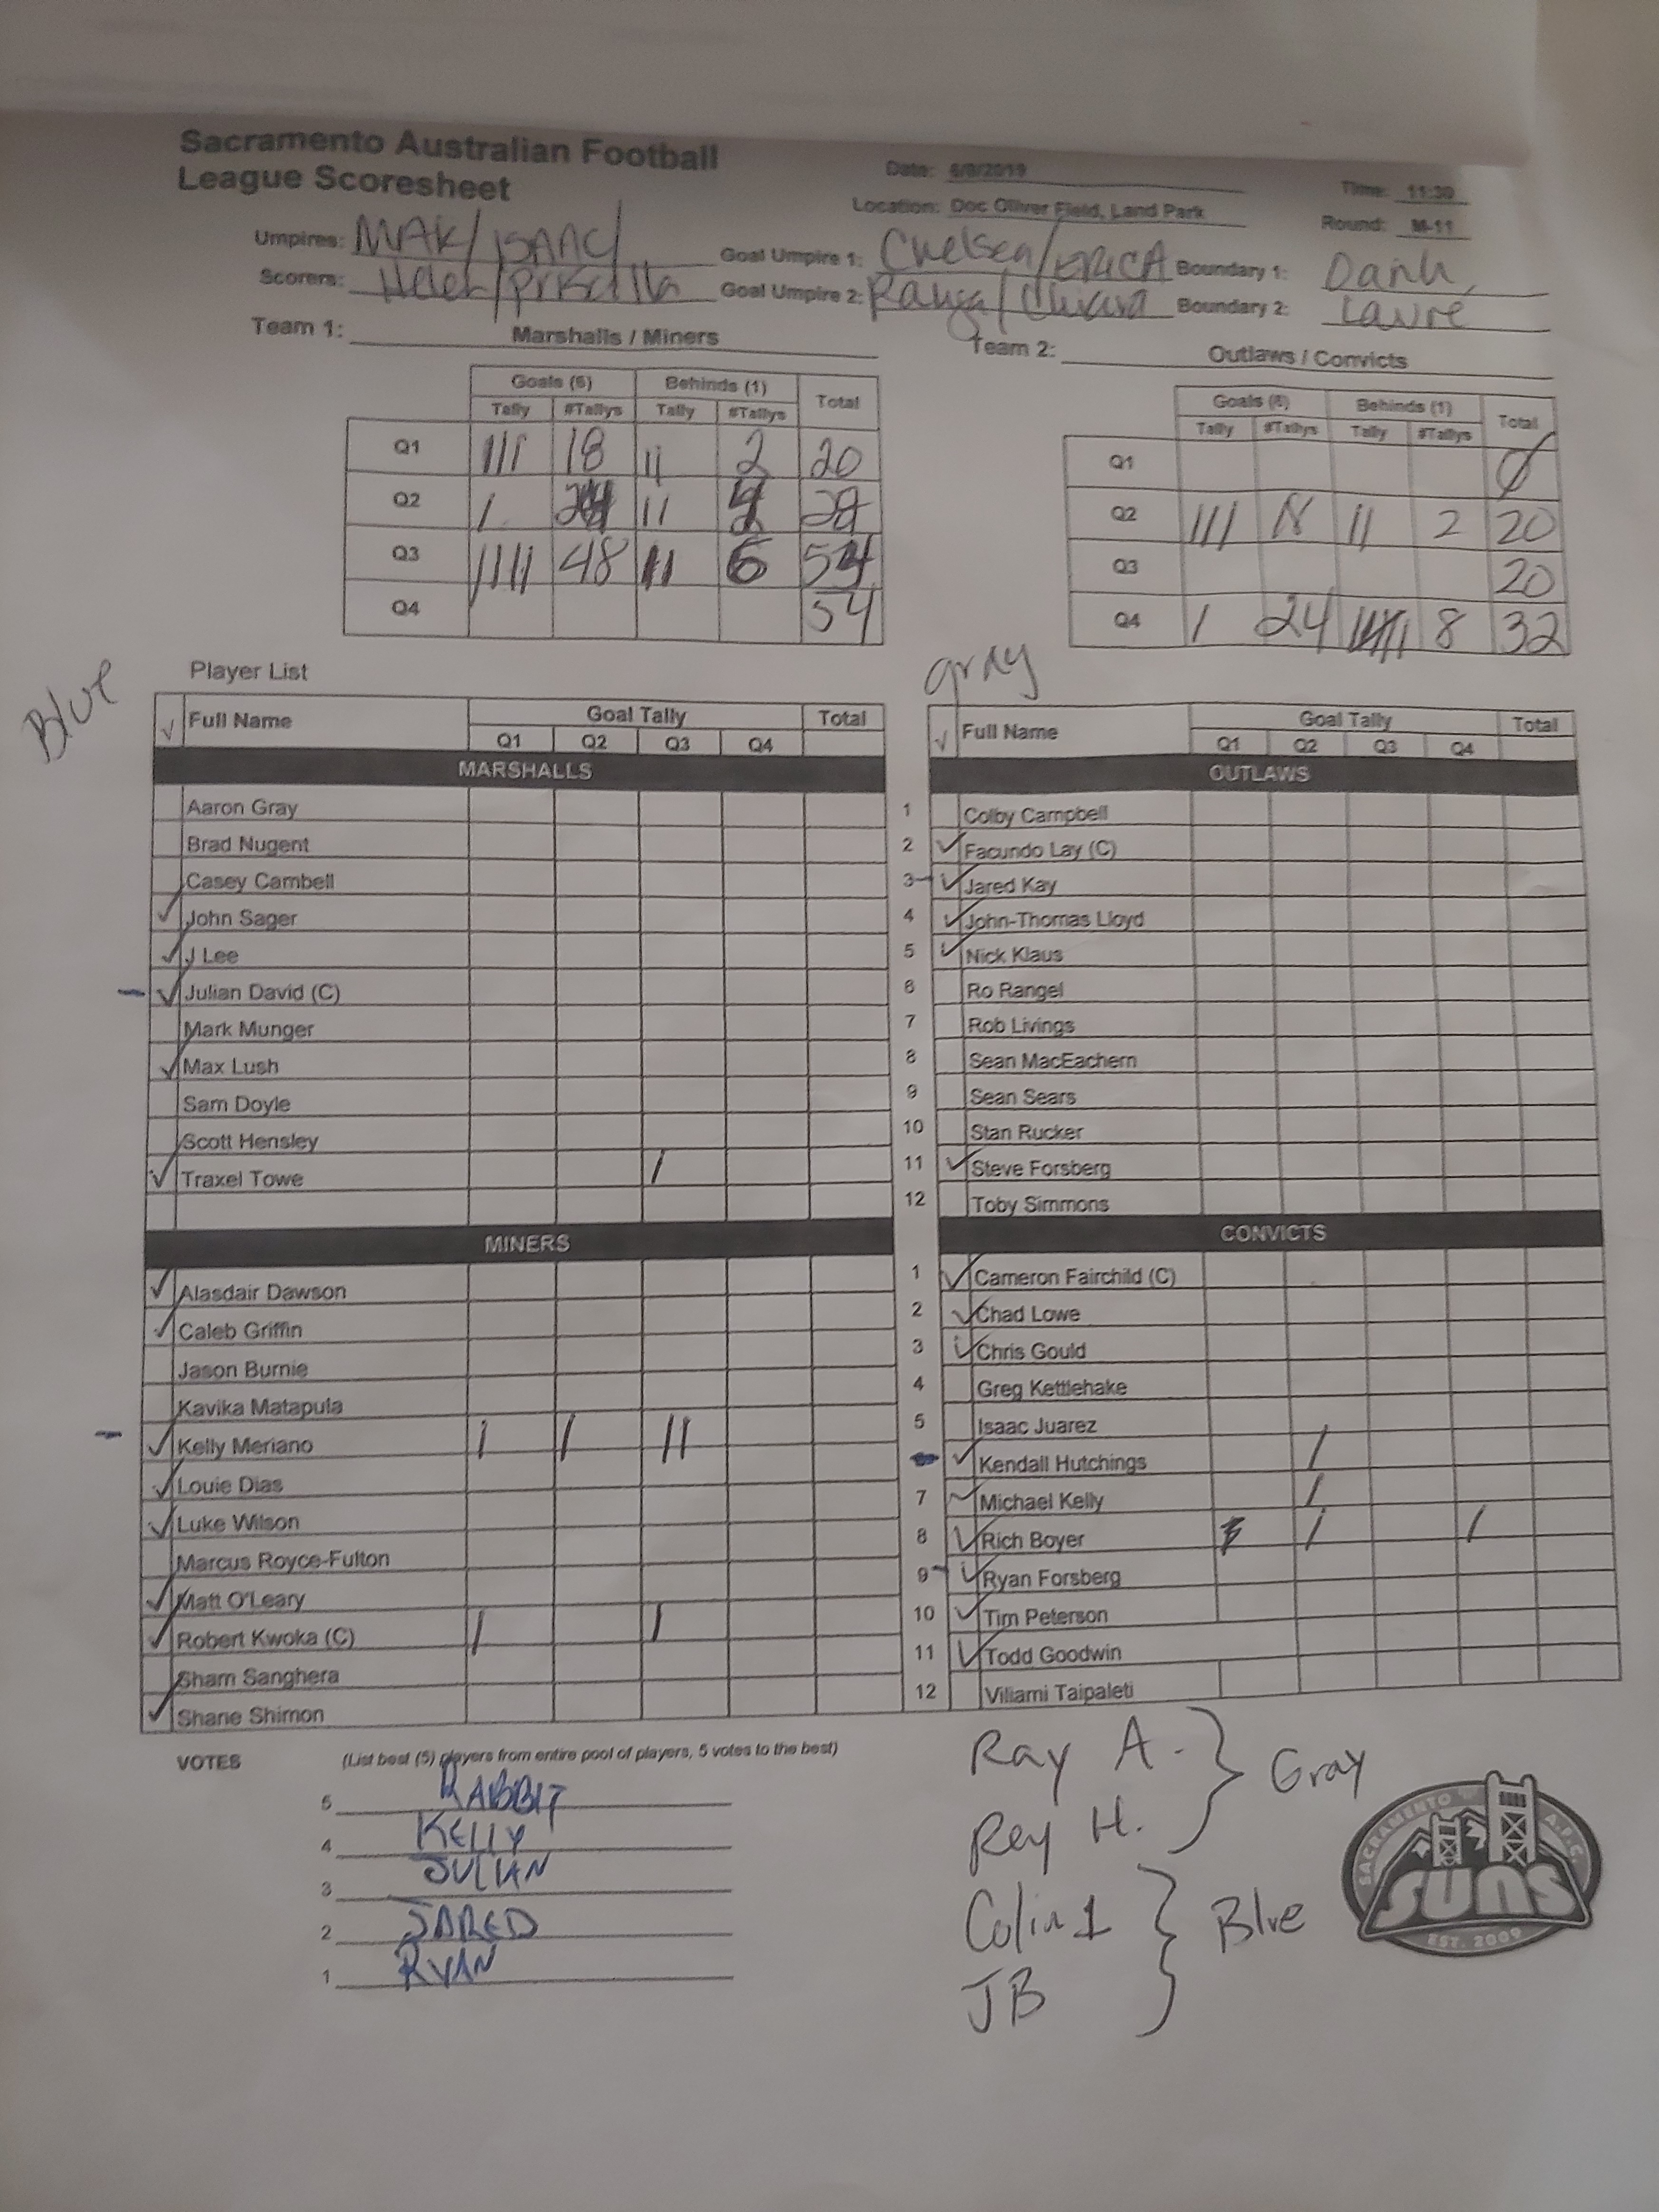 Sacramento Australian Football
League Scoresheet
Date: 6/8/2019
Time: 11:30
Location: Doc Oliver Field, Land Park
Round: M-11
Umpires: MAK/ISAAC/
Goal Umpire 1: Chelsea/ERICA
Boundary 1:
Scorers: Helen/Priscilla
Goal Umpire 2:
Boundary 2:
Team 1: Marshalls / Miners
Team 2: Outlaws / Convicts
Goals (6) Behinds (1) Total
Tally #Tallys Tally #Tallys
Q1 III 18 II 2 20
Q2 I II
Q3 IIII 48 II 6 54
Q4 54
Goals (6) Behinds (1) Total
Tally #Tallys Tally #Tallys
Q1 0
Q2 III 18 II 2 20
Q3 20
Q4 I 24 8 32
Blue
Player List
gray
√ Full Name Goal Tally Total
Q1 Q2 Q3 Q4
MARSHALLS
Aaron Gray
Brad Nugent
Casey Cambell
✓ John Sager
✓ J Lee
– ✓ Julian David (C)
Mark Munger
✓ Max Lush
Sam Doyle
Scott Hensley
✓ Traxel Towe I
MINERS
✓ Alasdair Dawson
✓ Caleb Griffin
Jason Burnie
Kavika Matapula
– ✓ Kelly Meriano I I II
✓ Louie Dias
✓ Luke Wilson
Marcus Royce-Fulton
✓ Matt O'Leary
✓ Robert Kwoka (C) I I
Sham Sanghera
✓ Shane Shimon
√ Full Name Goal Tally Total
Q1 Q2 Q3 Q4
OUTLAWS
1 Colby Campbell
2 ✓ Facundo Lay (C)
3 – ✓ Jared Kay
4 ✓ John-Thomas Lloyd
5 ✓ Nick Klaus
6 Ro Rangel
7 Rob Livings
8 Sean MacEachern
9 Sean Sears
10 Stan Rucker
11 ✓ Steve Forsberg
12 Toby Simmons
CONVICTS
1 ✓ Cameron Fairchild (C)
2 ✓ Chad Lowe
3 ✓ Chris Gould
4 Greg Kettlehake
5 Isaac Juarez
✓ Kendall Hutchings I
7 ✓ Michael Kelly I
8 ✓ Rich Boyer I I
9 – ✓ Ryan Forsberg
10 ✓ Tim Peterson
11 ✓ Todd Goodwin
12 Viliami Taipaleti
VOTES (List best (5) players from entire pool of players, 5 votes to the best)
5 RABBIT
4 KELLY
3 JULIAN
2 JARED
1 RYAN
Ray A.
Rey H.
Gray
Colin 1
JB
Blue
SACRAMENTO A.F.C.
SUNS
EST. 2009